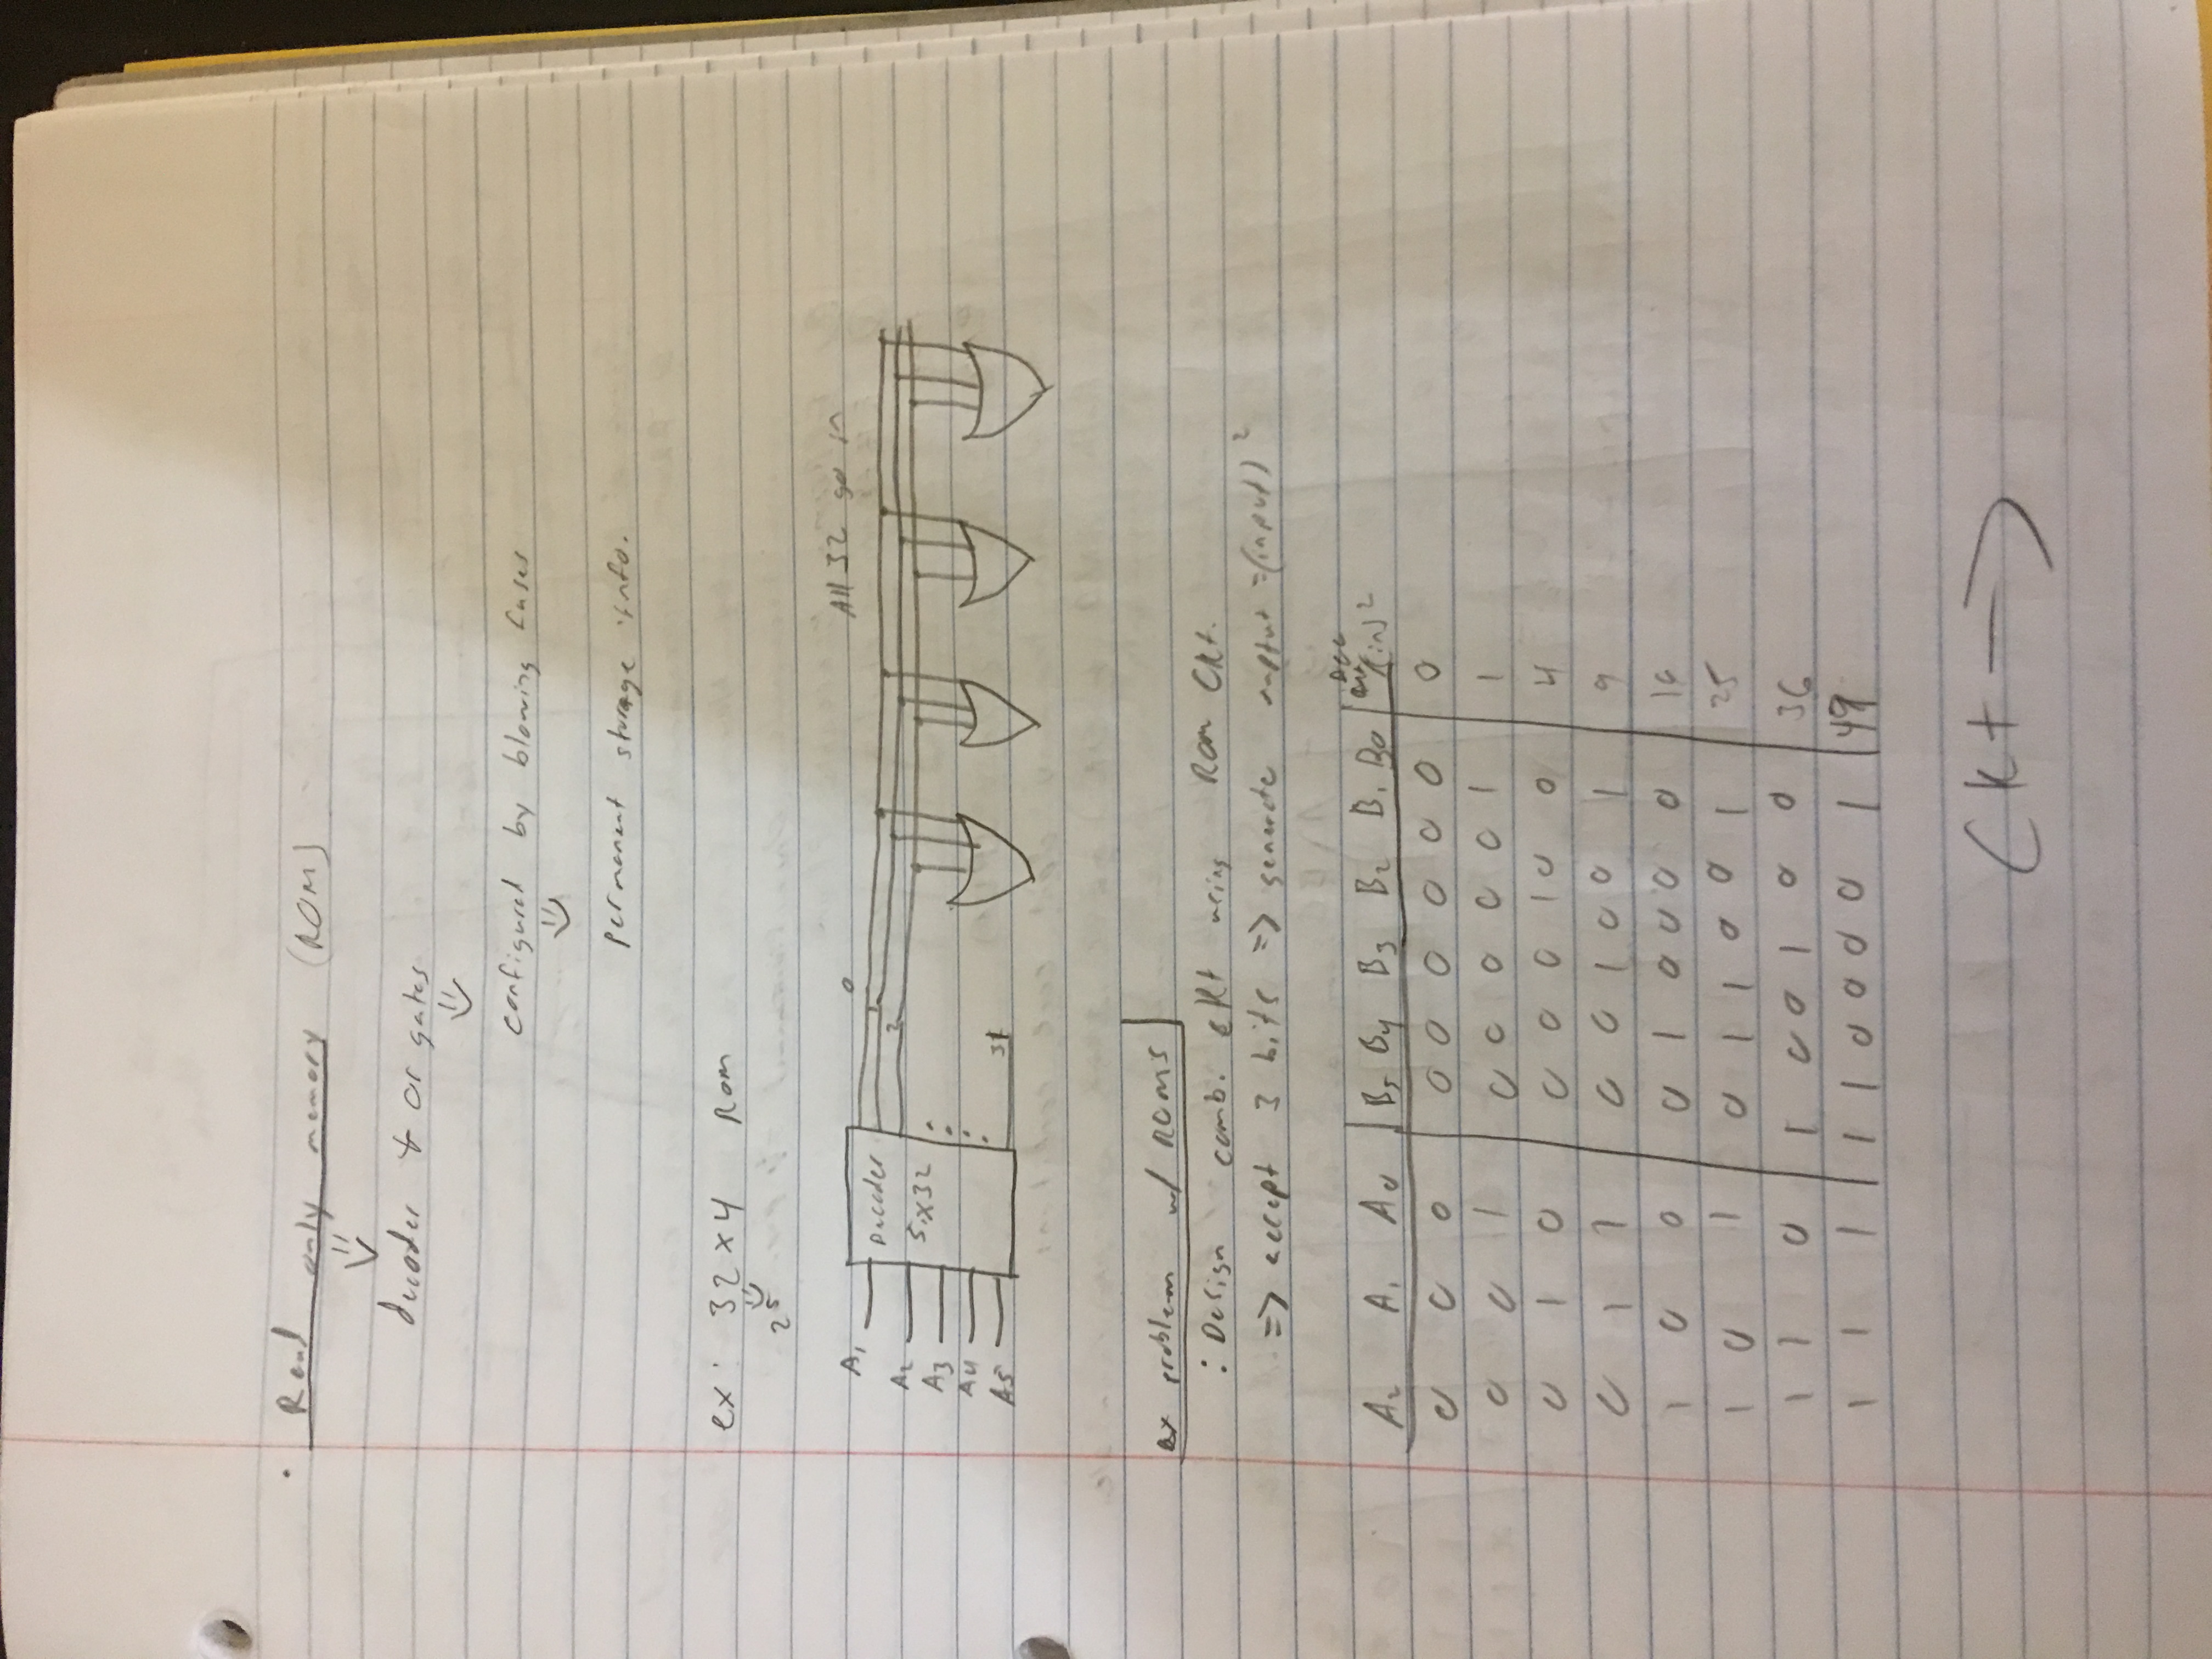 · Read only memory (ROM)
⇓
decoder + or gates
⇓
configured by blowing fuses
⇓
permanent storage info.
ex: 32 x 4 Rom
⇓
2^5
All 32 go in
A1
A2
A3
A4
A5
Decoder
5x32
0
1
2
31
ex problem w/ ROMS
: Design comb. ckt using Rom Ckt.
=> accept 3 bits => generate output = (input)^2
A2 A1 A0 | B5 B4 B3 B2 B1 B0 | Dec (in)^2
0 0 0 | 0 0 0 0 0 0 | 0
0 0 1 | 0 0 0 0 0 1 | 1
0 1 0 | 0 0 0 1 0 0 | 4
0 1 1 | 0 0 1 0 0 1 | 9
1 0 0 | 0 1 0 0 0 0 | 16
1 0 1 | 0 1 1 0 0 1 | 25
1 1 0 | 1 0 0 1 0 0 | 36
1 1 1 | 1 1 0 0 0 0 1 | 49
Ckt →